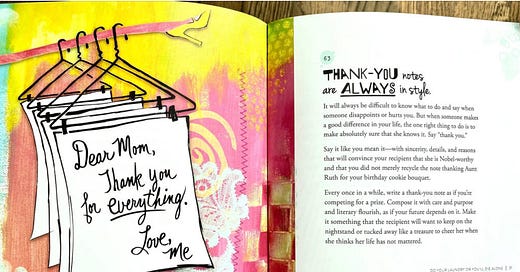 Dear Mom,
Thank you
for everything.
Love,
Me
63
THANK-YOU notes
are ALWAYS in style.
It will always be difficult to know what to do and say when
someone disappoints or hurts you. But when someone makes
a good difference in your life, the one right thing to do is to
make absolutely sure that she knows it. Say "thank you."
Say it like you mean it—with sincerity, details, and reasons
that will convince your recipient that she is Nobel-worthy
and that you did not merely recycle the note thanking Aunt
Ruth for your birthday cookie bouquet.
Every once in a while, write a thank-you note as if you're
competing for a prize. Compose it with care and purpose
and literary flourish, as if your future depends on it. Make
it something that the recipient will want to keep on the
nightstand or tucked away like a treasure to cheer her when
she thinks her life has not mattered.
DO YOUR LAUNDRY OR YOU'LL DIE ALONE